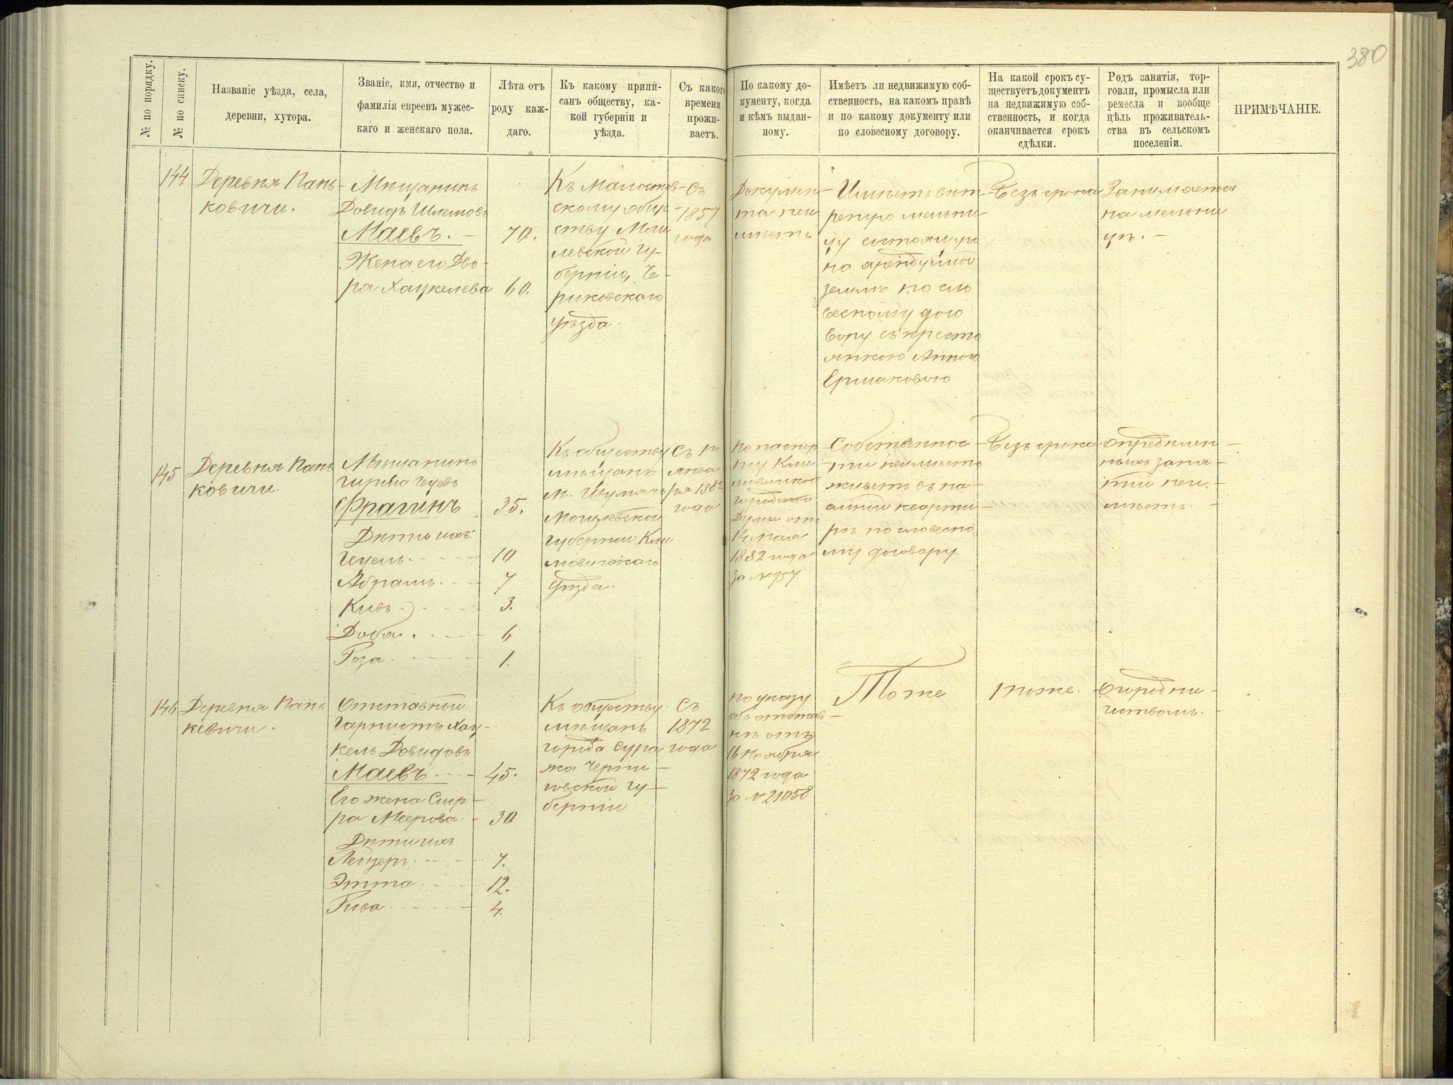 380
№ по порядку.
№ по списку.
Названіе уѣзда, села,
деревни, хутора.
Званіе, имя, отчество и
фамилія евреевъ мужес-
каго и женскаго пола.
Лѣта отъ
роду каж-
даго.
Къ какому припи-
санъ обществу, ка-
кой губерніи и
уѣзда.
Съ какого
времени
прожи-
ваетъ.
По какому до-
кументу, когда
и кѣмъ выдан-
ному.
Имѣетъ ли недвижимую соб-
ственность, на какомъ правѣ
и по какому документу или
по словесному договору.
На какой срокъ су-
ществуетъ документъ
на недвижимую соб-
ственность, и когда
оканчивается срокъ
сдѣлки.
Родъ занятія, тор-
говли, промысла или
ремесла и вообще
цѣль проживатель-
ства въ сельскомъ
поселеніи.
ПРИМѢЧАНІЕ.
144
Деревня Пань-
ковичи.
Мѣщанинъ
Довидъ Шлемовъ
Маевъ. 70.
Жена его Дво-
ра Хацкелева 60.
скому обще-
ству Моги
левской гу-
берніи, Че-
риковскаго
уѣзда.
Съ
1857
года
Докумен-
та не и
мѣетъ
Имѣетъ вѣт
реную мельни
цу состоящую
на арендуемой
землѣ по сло
весному дого
вору съ кресть
янкою Анною
Ермаковою
Безъ срока
Занимается
на мельни
цѣ.
145
Деревня Пань
ковичи.
Мѣщанинъ
Фрагинъ 35.
Дѣти ихъ:
10
Абрамъ 7
3.
Доба 6
Роза 1.
Къ обществу
мѣщанъ
м. Шумячъ
Могилевской
губерніи Кли
мовичскаго
уѣзда.
Съ
янва
ря 1882
года
По паспор
ту Кли
мовичской
городской
Думы отъ
14 мая
1882 года
за № 957
Собственнос-
ти не имѣетъ
живетъ въ на-
емной кварти-
рѣ по словесно
му договору.
Безъ срока
Опредѣлен-
ныхъ заня-
тій не и-
мѣетъ.
146
Деревня Пань
ковичи.
Отставной
Горнистъ Хац-
кель Довидовъ
Маевъ. 45.
Его жена
ра Меерова 30
Дѣти ихъ
Лейзеръ 7.
Этта 12.
Рива 4.
Къ обществу
мѣщанъ
города Сура
жа Черни-
говской гу-
берніи
Съ
1872
года
По указу
объ отстав-
кѣ отъ
16 Ноября
1872 года
за № 21058
Тоже
тоже.